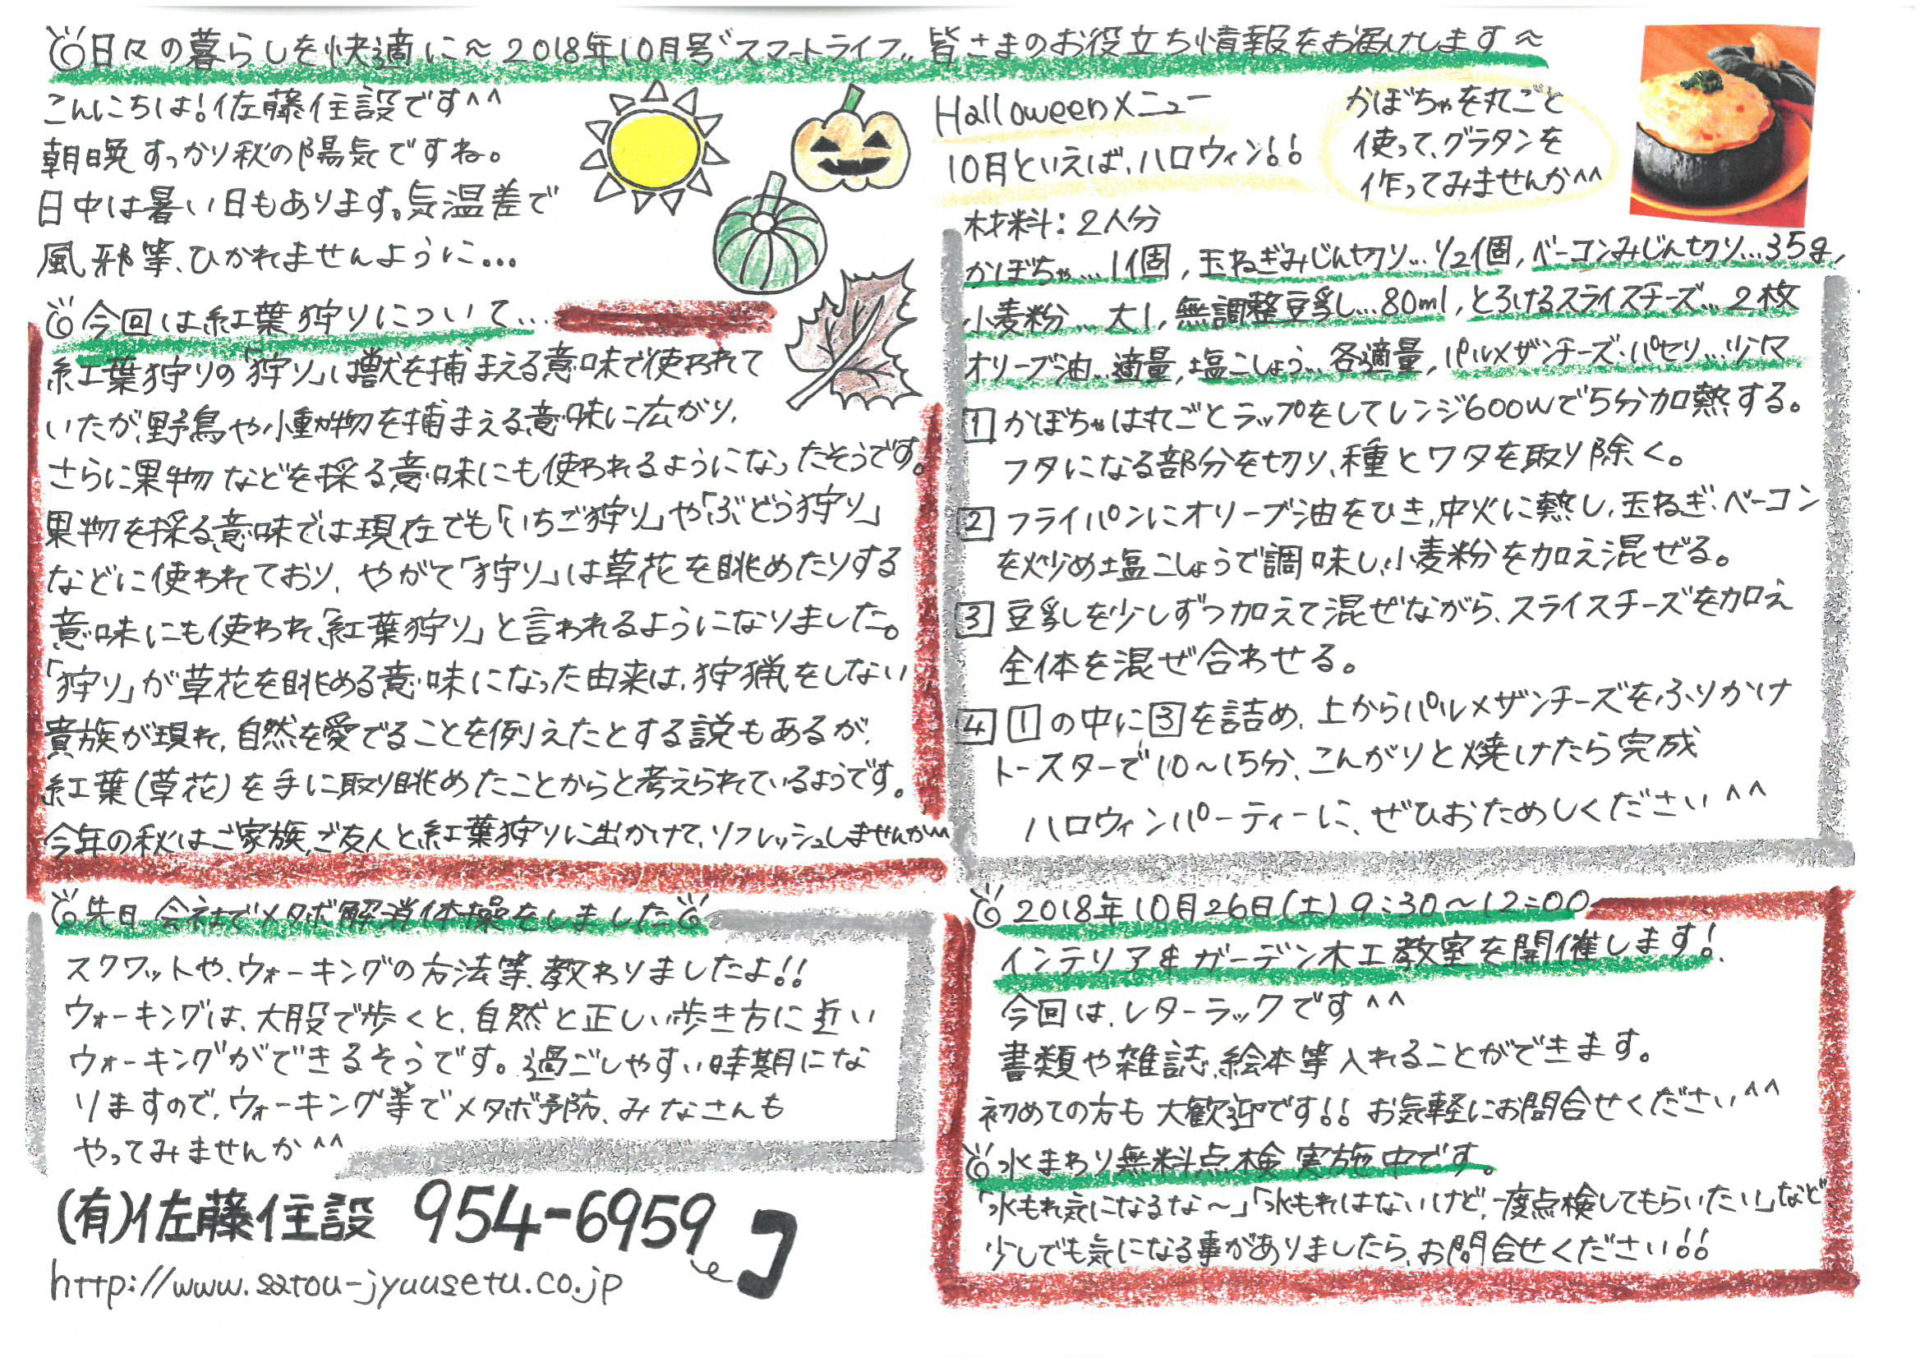 日々の暮らしを快適に～2018年10月号〝スマートライフ〟皆さまのお役立ち情報をお届けします～
こんにちは!佐藤住設です^^
朝晩すっかり秋の陽気ですね。
日中は暑い日もあります。気温差で
風邪等、ひかれませんように...
今回は紅葉狩りについて...
紅葉狩りの「狩り」は獣を捕まえる意味で使われて
いたが、野鳥や小動物を捕まえる意味に広がり、
さらに果物などを採る意味にも使われるようになったそうです。
果物を採る意味では現在でも「いちご狩り」や「ぶどう狩り」
などに使われており、やがて「狩り」は草花を眺めたりする
意味にも使われ、「紅葉狩り」と言われるようになりました。
「狩り」が草花を眺める意味になった由来は、狩猟をしない
貴族が現れ、自然を愛でることを例えたとする説もあるが、
紅葉(草花)を手に取り眺めたことからと考えられているようです。
今年の秋はご家族、ご友人と紅葉狩りに出かけて、リフレッシュしませんか^^
先日 会社でメタボ解消体操をしました
スクワットや、ウォーキングの方法等、教わりましたよ!!
ウォーキングは、大股で歩くと、自然と正しい歩き方に近い
ウォーキングができるそうです。過ごしやすい時期にな
りますので、ウォーキング等でメタボ予防、みなさんも
やってみませんか^^
(有)佐藤住設 954-6959
http://www.satou-jyuusetu.co.jp
Halloweenメニュー
10月といえば、ハロウィン!!
かぼちゃを丸ごと
使って、グラタンを
作ってみませんか^^
材料:2人分
かぼちゃ...1個, 玉ねぎみじん切り...1/2個, ベーコンみじん切り...35g,
小麦粉...大1, 無調整豆乳...80ml, とろけるスライスチーズ...2枚
オリーブ油...適量, 塩こしょう...各適量, パルメザンチーズ・パセリ...少々
1 かぼちゃは丸ごとラップをしてレンジ600Wで5分加熱する。
フタになる部分を切り、種とワタを取り除く。
2 フライパンにオリーブ油をひき、中火に熱し、玉ねぎ、ベーコン
を炒め塩こしょうで調味し、小麦粉を加え混ぜる。
3 豆乳を少しずつ加えて混ぜながら、スライスチーズを加え
全体を混ぜ合わせる。
4 1の中に3を詰め、上からパルメザンチーズをふりかけ
トースターで10～15分、こんがりと焼けたら完成
ハロウィンパーティーに、ぜひおためしください^^
2018年10月26日(土) 9:30～12:00
インテリア&ガーデン木工教室を開催します!
今回は、レターラックです^^
書類や雑誌、絵本等入れることができます。
初めての方も大歓迎です!! お気軽にお問合せください^^
水まわり無料点検実施中です。
「水もれ気になるな～」「水もれはないけど、一度点検してもらいたい」など
少しでも気になる事がありましたら、お問合せください!!